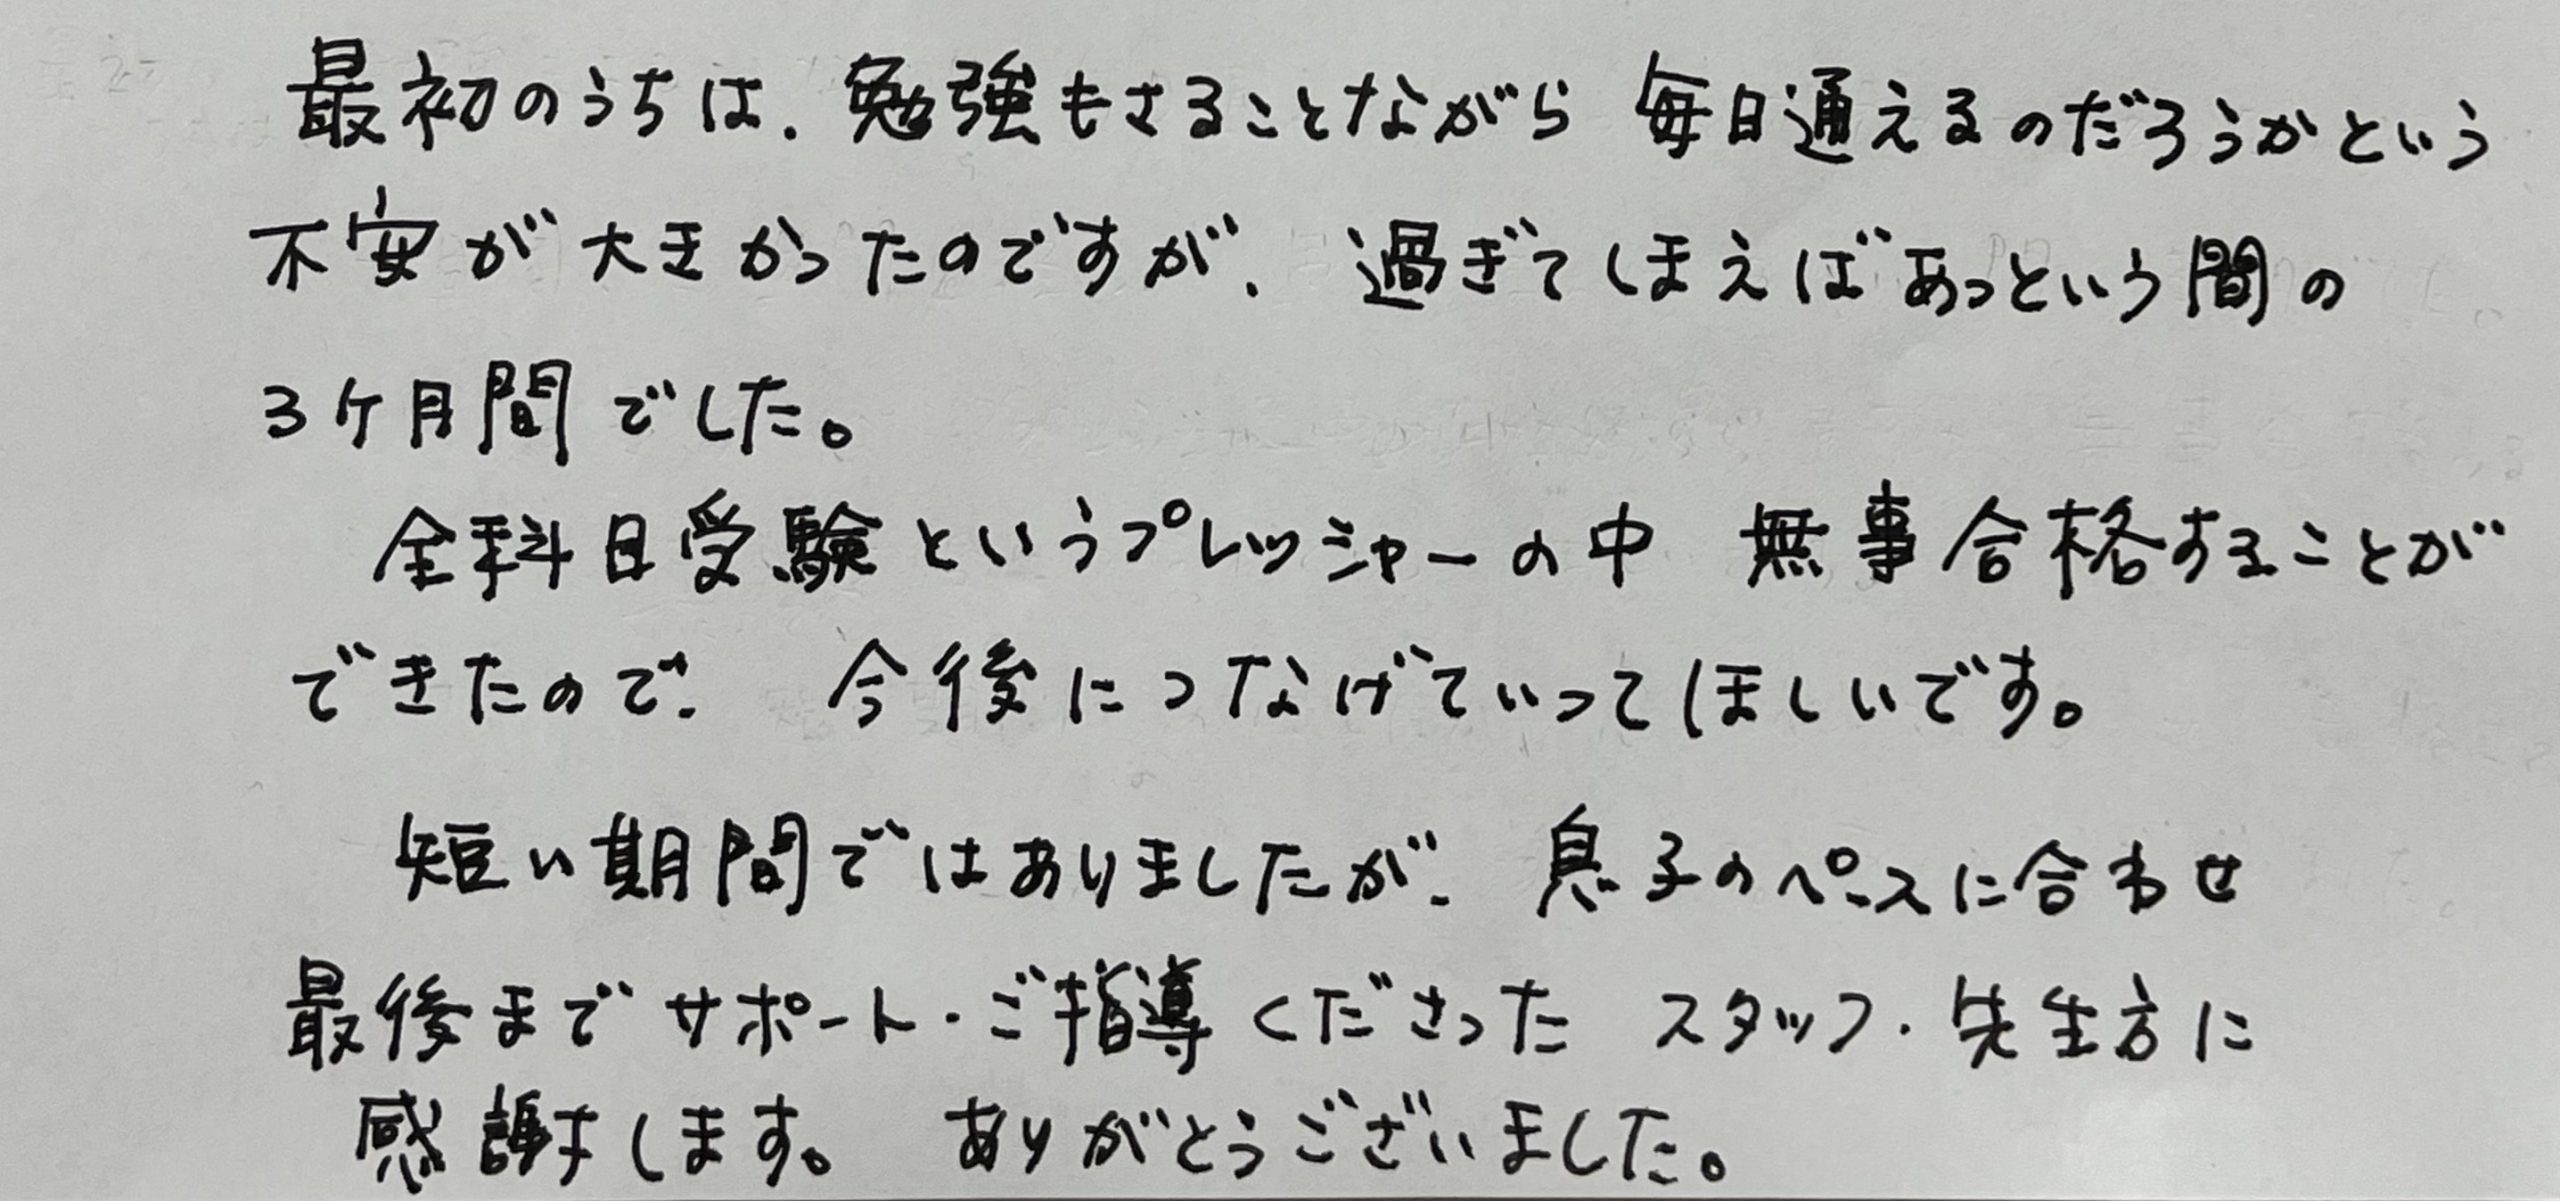 最初のうちは、勉強もさることながら 毎日通えるのだろうかという
不安が大きかったのですが、過ぎてしまえばあっという間の
3ヶ月間でした。
全科目受験というプレッシャーの中 無事合格することが
できたので、今後につなげていってほしいです。
短い期間ではありましたが、息子のペースに合わせ
最後までサポート・ご指導くださった スタッフ・先生方に
感謝します。 ありがとうございました。